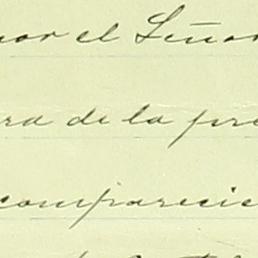 por el Señor
ra de la pre
comparecie